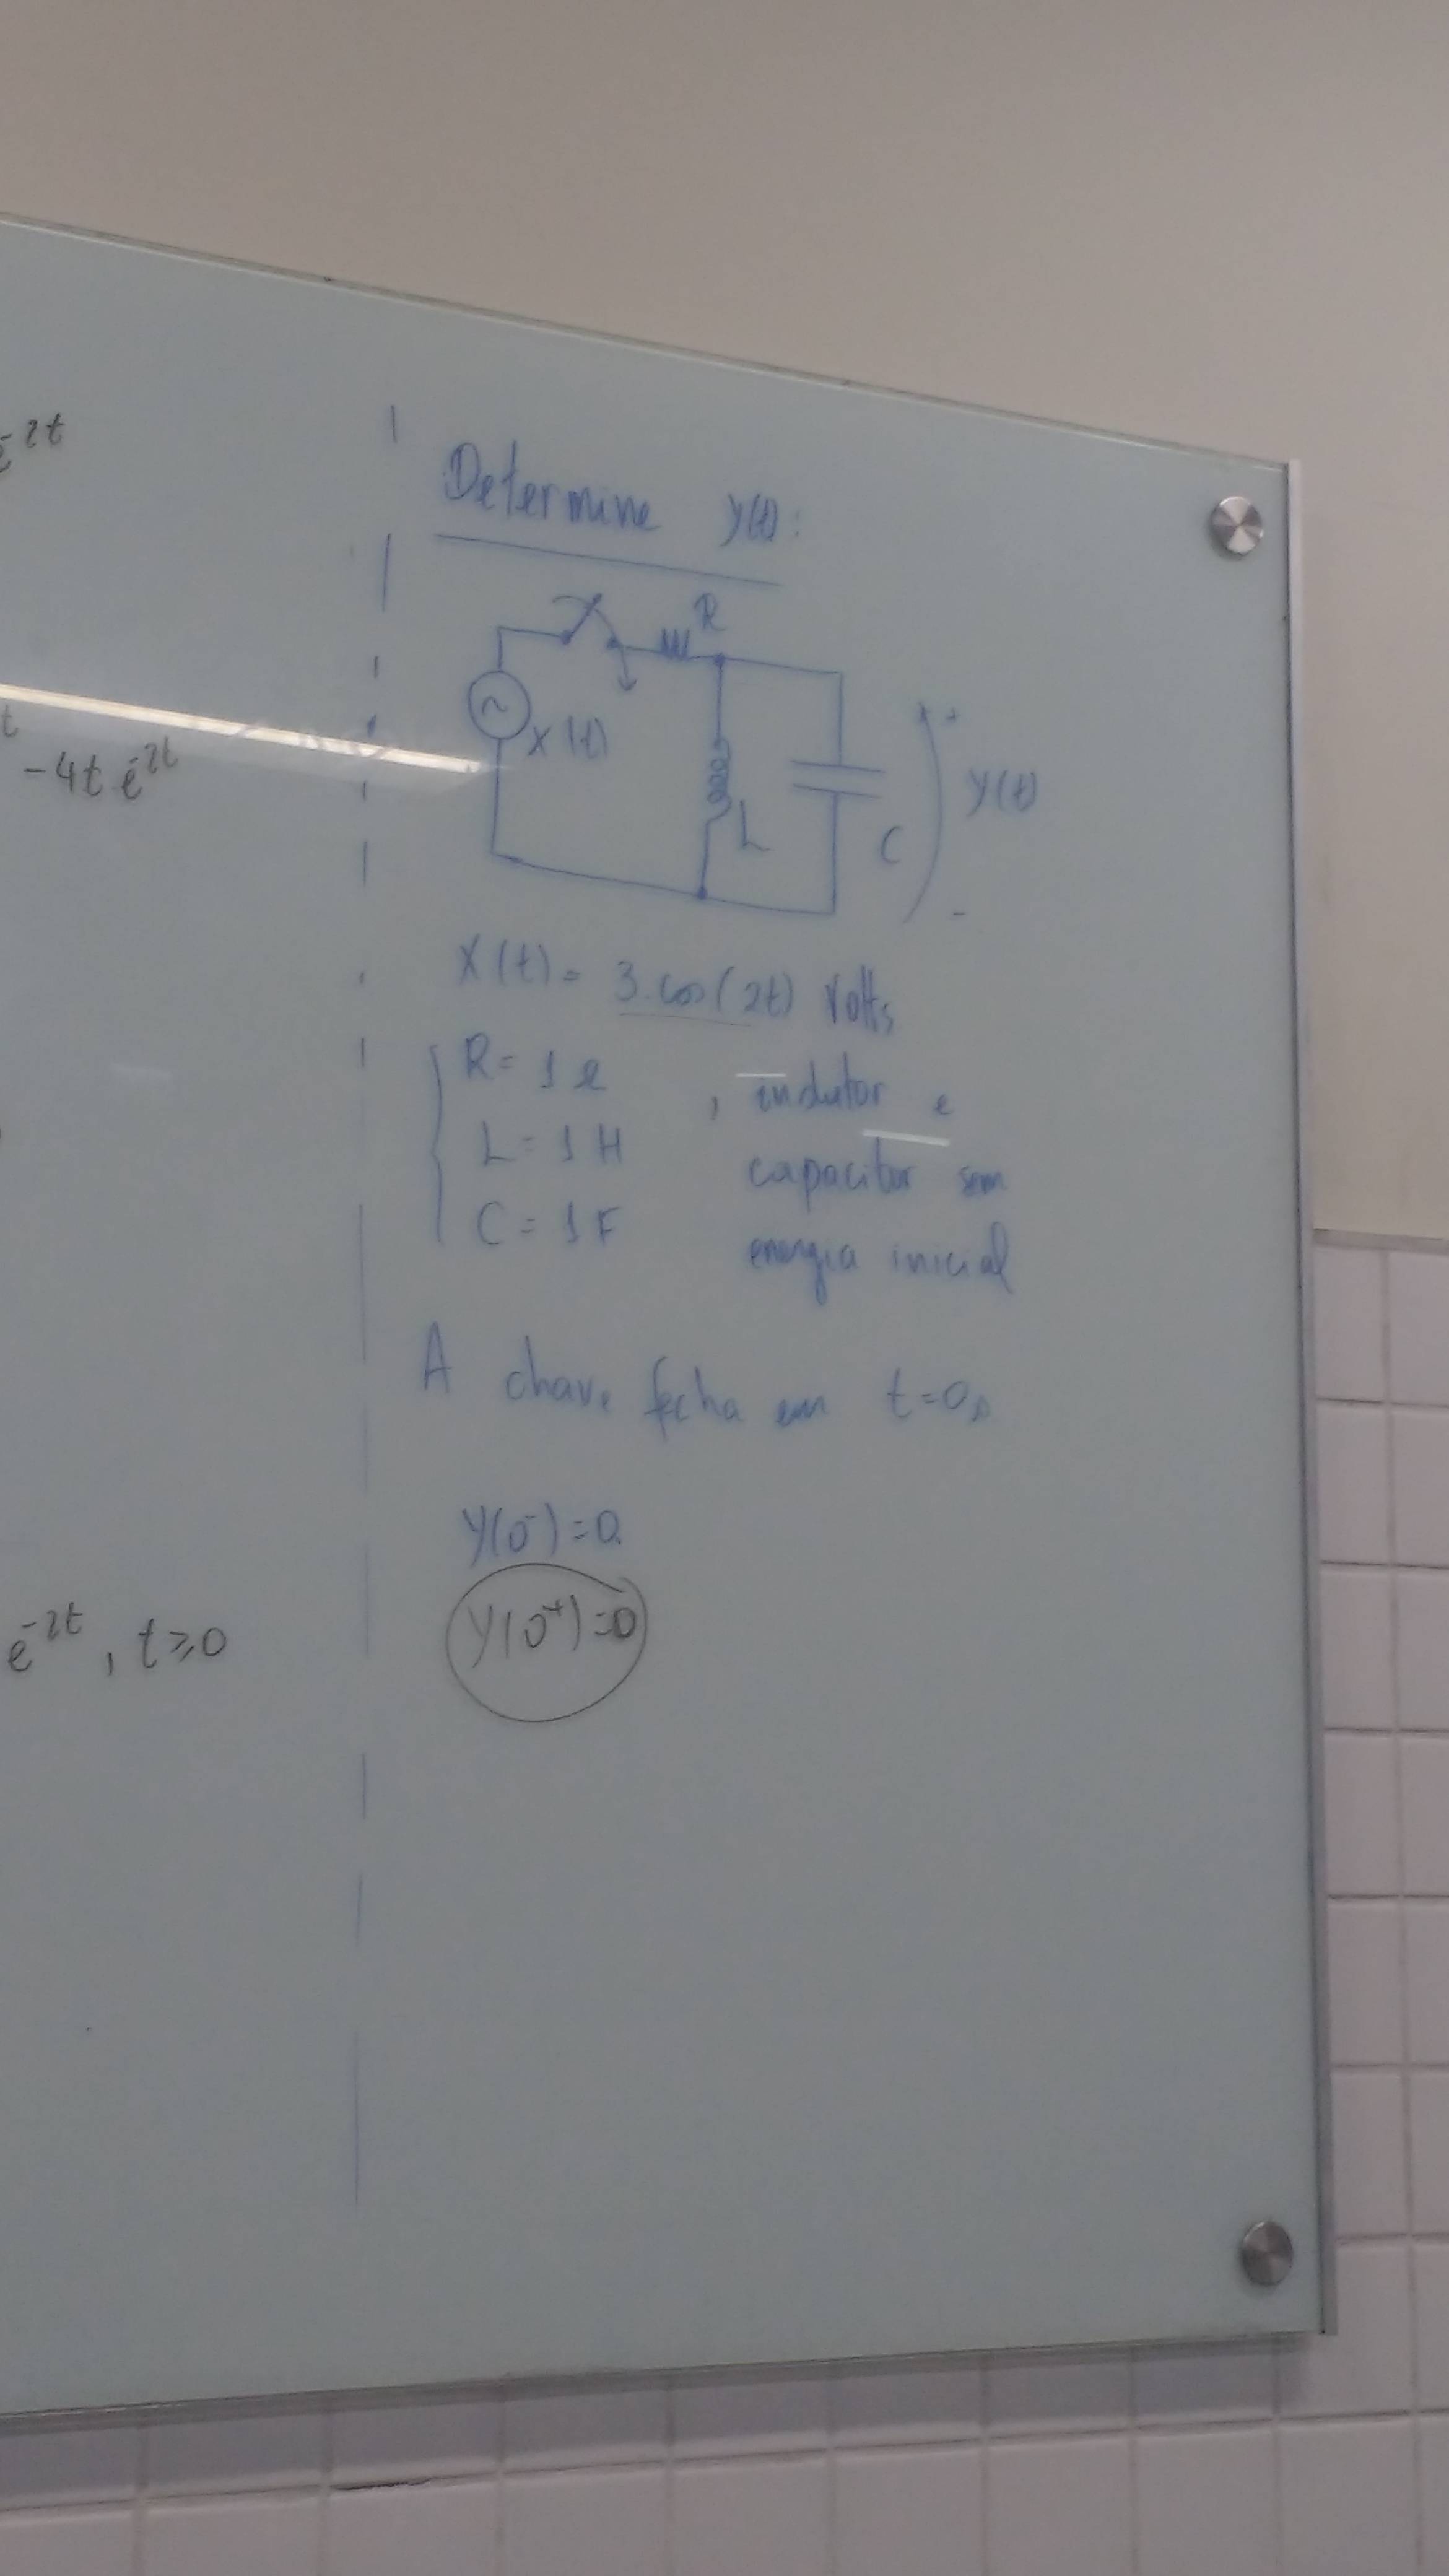 e^-2t
t
-4t e^-2t
e^-2t , t≥0
Determine y(t):
R
x(t)
L
C
+
y(t)
-
X(t)= 3.cos(2t) Volts
R= 1Ω , indutor e
L= 1H capacitor sem
C= 1F energia inicial
A chave fecha em t=0s
y(0^-)=0
y(0^+)=0